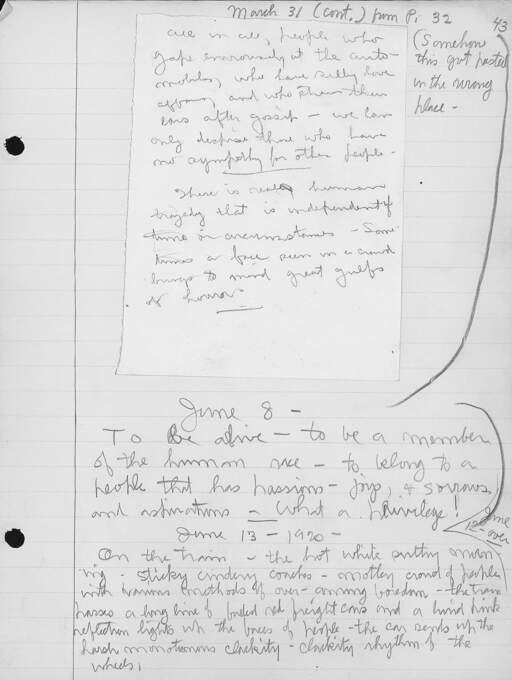 March 31 (cont.) from P. 32
43
(Somehow
this got pasted
in the wrong
place -
all in all, people who
gape enviously at the auto-
mobiles, who have silly love
affairs, and who strain their
ears after gossip - we can
only despise those who have
no sympathy for other people -
There is really human
tragedy that is independent of
time or circumstances - Some
times a face seen in a crowd
brings to mind great gulfs
of horror -
June 8 -
To Be alive - to be a member
of the human race - to belong to a
people that has passions - joys, & sorrows,
and aspirations - What a privilege!
June
12 - over
June 13 - 1920 -
On the train - the hot white sultry morn
ing - sticky cindery coaches - motley crowd of people
with various methods of over-coming boredom - the train
passes a long line of faded red freight cars and a lurid pink
reflection lights up the faces of people - the car sends up the
harsh monotonous clackity-clackity rhythm of the
wheels,